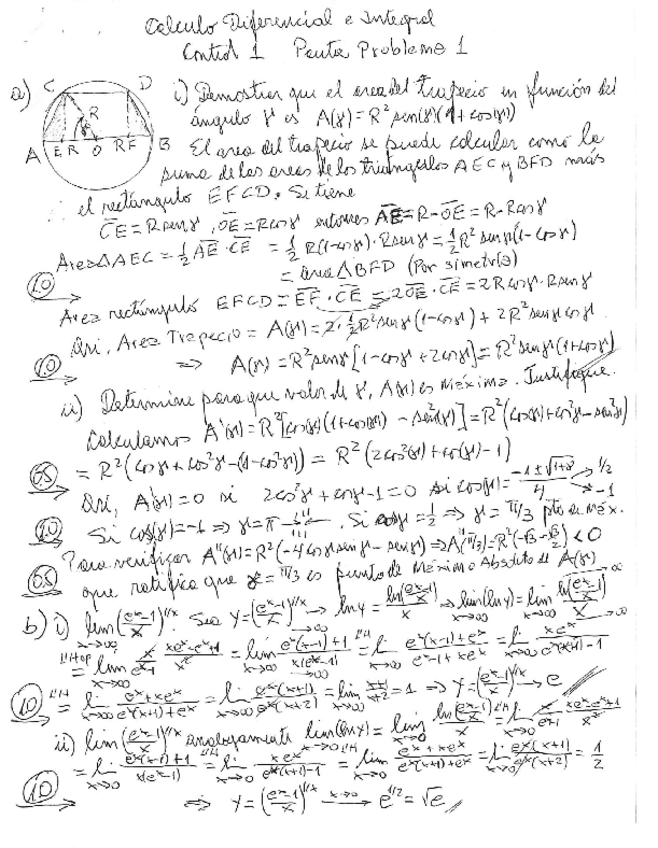 Calculo Diferencial e Integral
Control 1 Pauta Problema 1
a) C D i) Demostrar que el area del trapecio en función del
R ángulo γ es A(γ) = R² sen(γ)(1 + cos(γ))
A E R O R F B El area del trapecio se puede calcular como la
suma de las areas de los triangulos AEC y BFD más
∴ el rectángulo EFCD. Se tiene
CE = R senγ, OE = R cosγ entonces AE = R - OE = R - R cosγ
Area ΔAEC = 1/2 AE · CE = 1/2 R(1-cosγ) · R senγ = 1/2 R² senγ(1-cosγ)
1.0 = area ΔBFD (Por simetría)
Area rectángulo EFCD = EF · CE = 2OE · CE = 2R cosγ · R senγ
Asi, Area Trapecio = A(γ) = 2 · 1/2 R² senγ(1-cosγ) + 2R² senγ cosγ
1.0 ⇒ A(γ) = R² senγ[1-cosγ+2cosγ] = R² senγ(1+cosγ)
ii) Determine para que valor de γ, A(γ) es Máximo. Justifique.
Calculamos A'(γ) = R²[cos(γ)(1+cos(γ)) - sen²(γ)] = R²(cos(γ)+cos²γ-sen²γ)
0.5 = R²(cosγ+cos²γ-(1-cos²γ)) = R²(2cos²(γ)+cos(γ)-1)
Asi, A'(γ)=0 si 2cos²γ+cosγ-1=0 si cos(γ) = (-1±√(1+8))/4 → 1/2 → -1
1.0 Si cos(γ)=-1 ⇒ γ=π. Si cosγ=1/2 ⇒ γ=π/3 pto de Máx.
Para verificar A''(γ)=R²(-4cosγsenγ-senγ) ⇒ A''(π/3)=R²(-√3-√3/2)<0
0.5 que ratifica que γ=π/3 es punto de Máximo Absoluto de A(γ)
b) i) lim x→∞ ((eˣ-1)/x)^(1/x). Sea Y=((eˣ-1)/x)^(1/x) → ln Y = ln((eˣ-1)/x)/x → lim(ln Y) = lim x→∞ ln((eˣ-1)/x)/x
L'Hop = lim x→∞ x/(eˣ-1) · (xeˣ-eˣ+1)/x² = lim x→∞ (eˣ(x-1)+1)/(x(eˣ-1)) L'H = lim x→∞ (eˣ(x-1)+eˣ)/(eˣ-1+xeˣ) = lim x→∞ xeˣ/(eˣ(x+1)-1)
1.0 L'H = lim x→∞ (eˣ+xeˣ)/(eˣ(x+1)+eˣ) = lim x→∞ eˣ(x+1)/(eˣ(x+2)) = lim x→∞ (x+1)/(x+2) = 1 ⇒ Y=((eˣ-1)/x)^(1/x) → e
ii) lim x→0 ((eˣ-1)/x)^(1/x) analogamente lim x→0 (ln Y) = lim x→0 ln((eˣ-1)/x)/x L'H = lim x→0 x/(eˣ-1) · (xeˣ-eˣ+1)/x²
= lim x→0 (eˣ(x-1)+1)/(x(eˣ-1)) L'H = lim x→0 xeˣ/(eˣ(x+1)-1) = lim x→0 (eˣ+xeˣ)/(eˣ(x+1)+eˣ) = lim x→0 eˣ(x+1)/(eˣ(x+2)) = 1/2
1.0 ⇒ Y=((eˣ-1)/x)^(1/x) x→0 → e^(1/2) = √e